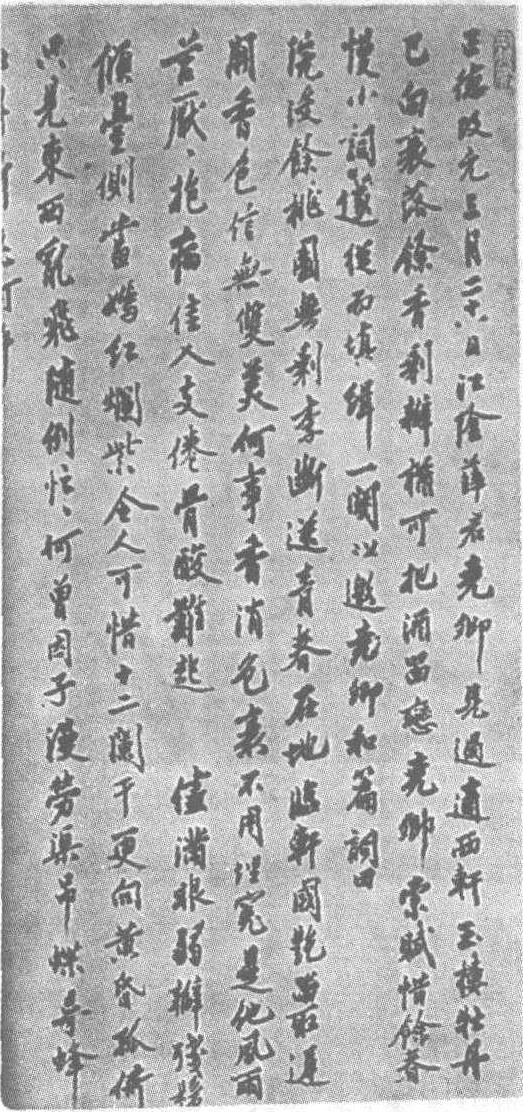 正德改元三月二十八日江陰薛君堯卿見過適西軒玉樓牡丹
已向衰落餘香剩瓣猶可把酒留戀堯卿索賦惜餘春
慢小詞遂從而填緝一闋以邀堯卿和篇詞曰
院沒餘桃園無剩李斷送青春在地臨軒國艷留取遲
開香色信無雙美何事香消色衰不用埋冤是他風雨
苦厭、抱病佳人支倦骨酸難起 僅滿眼弱瓣殘鬚
傾臺側當嫣紅爛紫令人可惜十二闌干更向黃昏孤倚
只見東西亂飛隨例忙、何曾因子漫勞渠吊蝶尋蜂